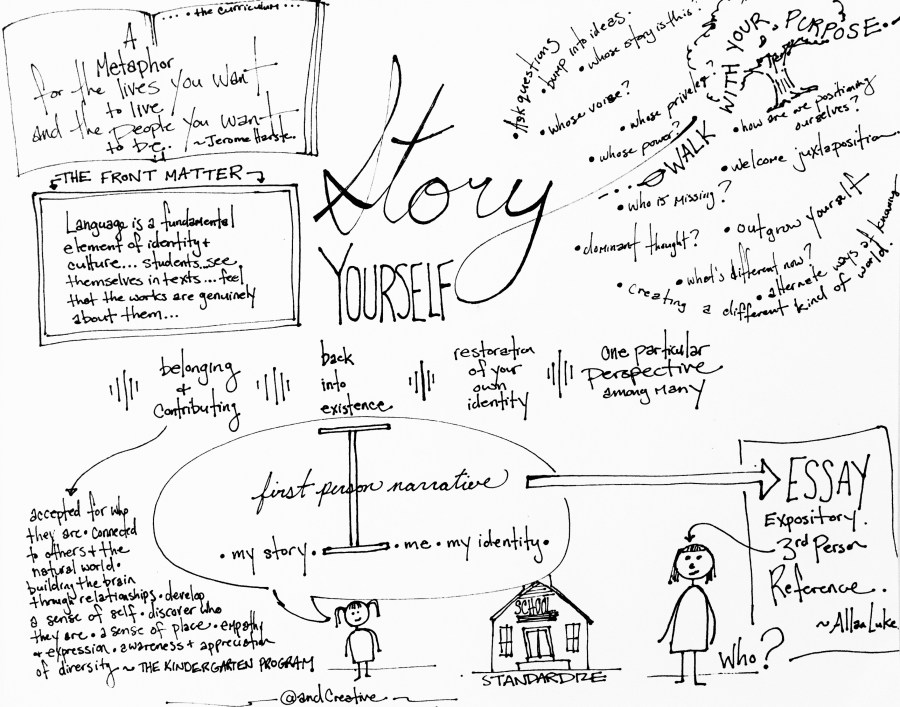 ... • the curriculum...
A
Metaphor
for the lives you want
to live
and the people you want
to be.
~Jerome Harste..
THE FRONT MATTER
Language is a fundamental
element of identity +
culture... students...see
themselves in texts...feel
that the works are genuinely
about them...
Story
YOURSELF
• Ask questions
• bump into ideas.
• whose story is this?
• whose voice?
• whose privilege?
• whose power?
WALK
WITH YOUR
PURPOSE
• how are we positioning
ourselves?
• welcome juxtaposition
• who is missing?
• outgrow yourself
• dominant thought?
• what's different now?
• alternate ways of knowing
• creating a different kind of world.
belonging
+
contributing
back
into
existence
restoration
of your
own
identity
one particular
perspective
among many
I
first person narrative
• my story • • me • my identity •
accepted for who
they are • connected
to others + the
natural world •
building the brain
through relationships • develop
a sense of self • discover who
they are • a sense of place • empathy
+ expression • awareness + appreciation
of diversity ~ THE KINDERGARTEN PROGRAM
SCHOOL
STANDARDIZE
ESSAY
Expository.
3rd Person
Reference..
~Allan Luke
Who?
@andCreative